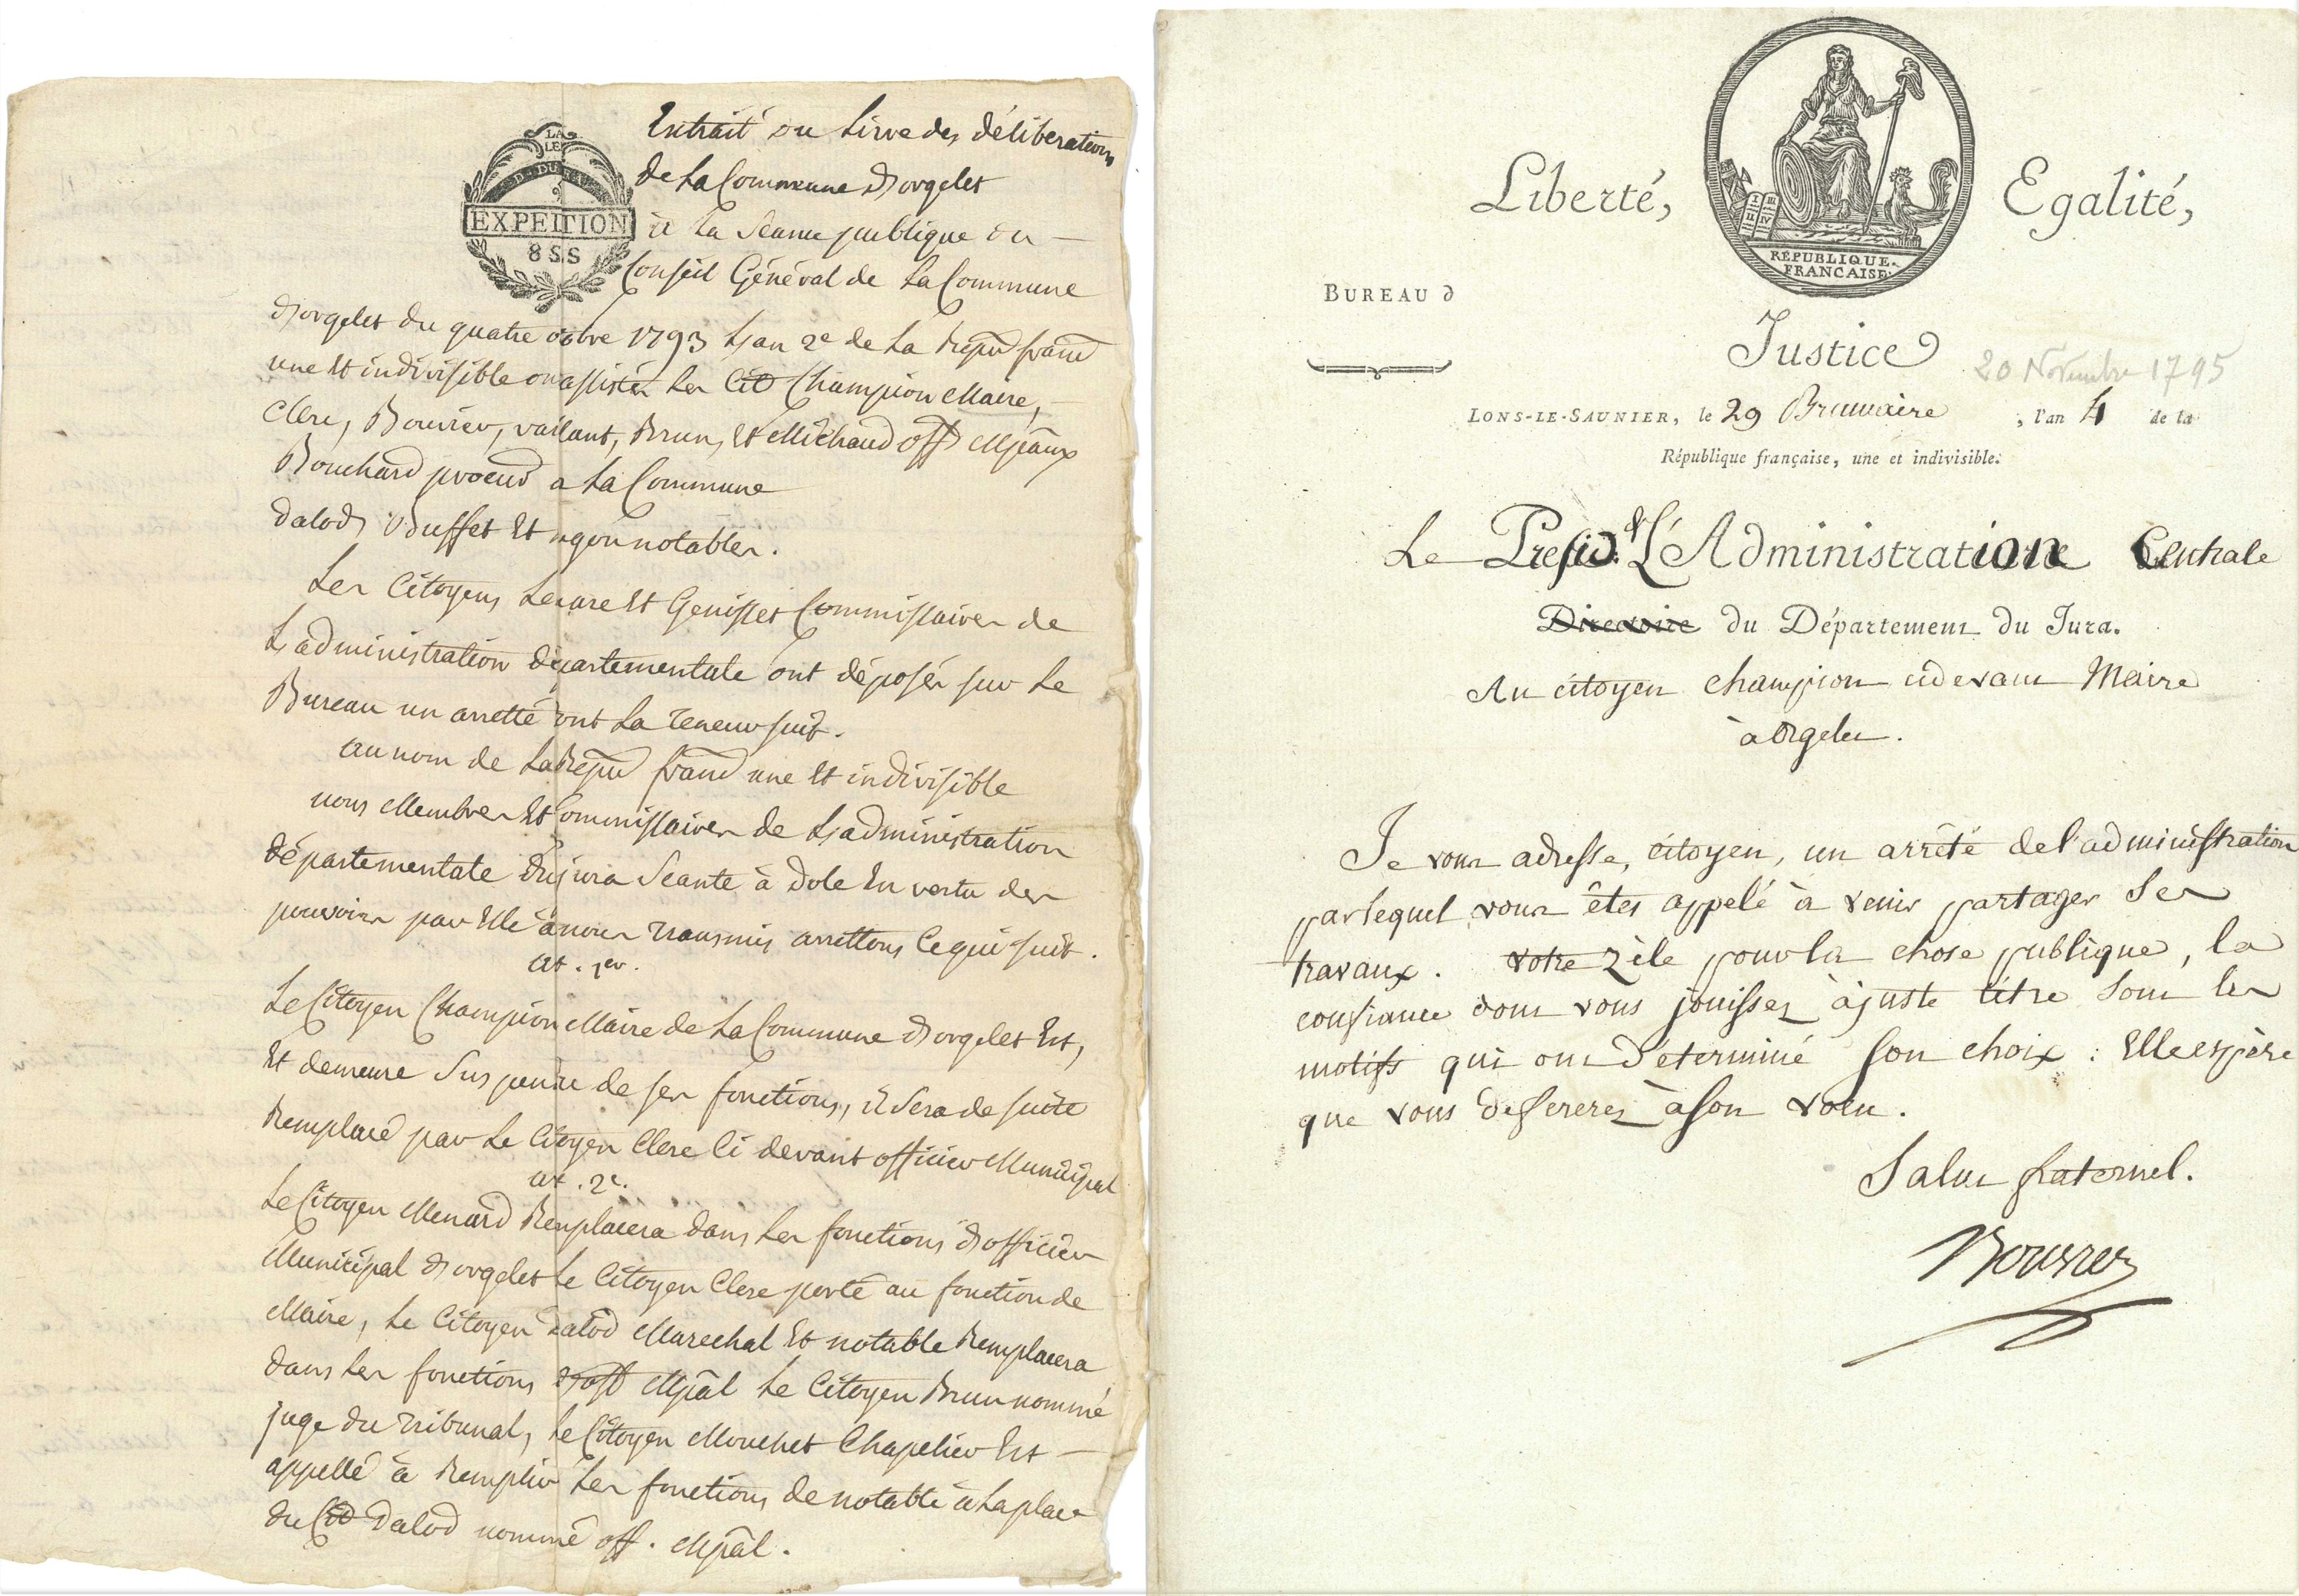 Extrait du Livre des déliberations
de La Commune d'orgelet
à La Séance publique du
Conseil Général de La Commune
LA
LE
EXPEITION
8 S S
d'orgelet du quatre 8bre 1793 L'an 2e de La Repuᵉ franᵉ
une Et indivisible ou assister Les Cit Champion Maire,
Clerc, Bouvier, vaillant, Brun, Et Michaud off Mpaux
Bouchard procur a La Commune
dalod, Buffet Et notables.
Les Citoyens Et Genisset Commissaires de
L'administration départementale ont déposés sur Le
Bureau un arretté dont La teneur suit.
au nom de La Repuᵉ franᵉ une Et indivisible
nous Membres Et Commissaires de L'administration
départementale du jura Séante à dole En vertu des
pouvoirs par Elle à nous transmis arrettons Ce qui suit.
art. 1er.
Le Citoyen Champion Maire de La Commune d'orgelet Est,
Et demeure Suspendu de ses fonctions, il Sera de suite
Remplacé par Le Citoyen Clerc Ci devant officier Municipal
art. 2e.
Le Citoyen Menard Remplacera dans Les fonctions d'officier
Municipal d'orgelet Le Citoyen Clerc porté au fonction de
Maire, Le Citoyen dalod Marechal Et notable Remplacera
dans Les fonctions d'off Mpal Le Citoyen Brun nommé
juge du tribunal, Le Citoyen Mouchet Chapelier Est
appellé à Remplir Les fonctions de notable à La place
du Cit Dalod nommé off. Mpal.
RÉPUBLIQUE
FRANÇAISE
Liberté, Egalité,
BUREAU d
Justice
20 Novembre 1795
LONS-LE-SAUNIER, le 29 Brumaire , l'an 4 de la
République française, une et indivisible.
Le Presid. de L'Administration Centrale
Directoire du Département du Jura.
Au citoyen champion cidevant Maire
à Orgelet.
Je vous adresse, citoyen, un arrêté de l'administration
par lequel vous êtes appelé à venir partager Ses
travaux. votre zèle pour la chose publique, la
confiance dont vous jouissez à juste titre Sont les
motifs qui ont déterminé son choix : Elle espère
que vous defererez à son voeu.
Salut fraternel.
Bouvier